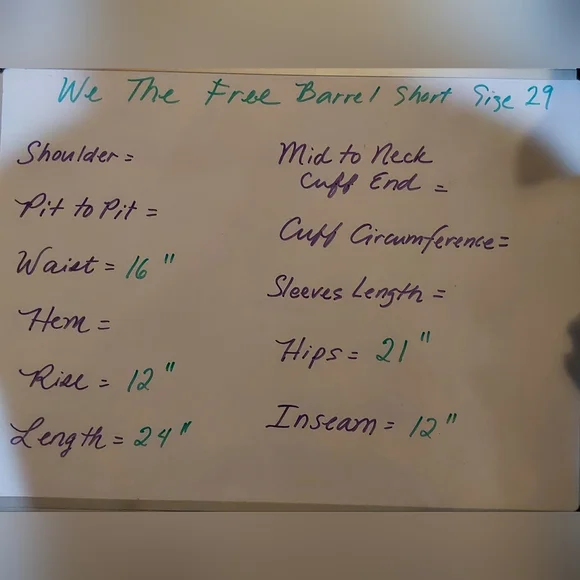 We The Free Barrel Short Size 29
Shoulder =
Pit to Pit =
Waist = 16"
Hem =
Rise = 12"
Length = 24"
Mid to Neck
Cuff End =
Cuff Circumference =
Sleeves Length =
Hips = 21"
Inseam = 12"